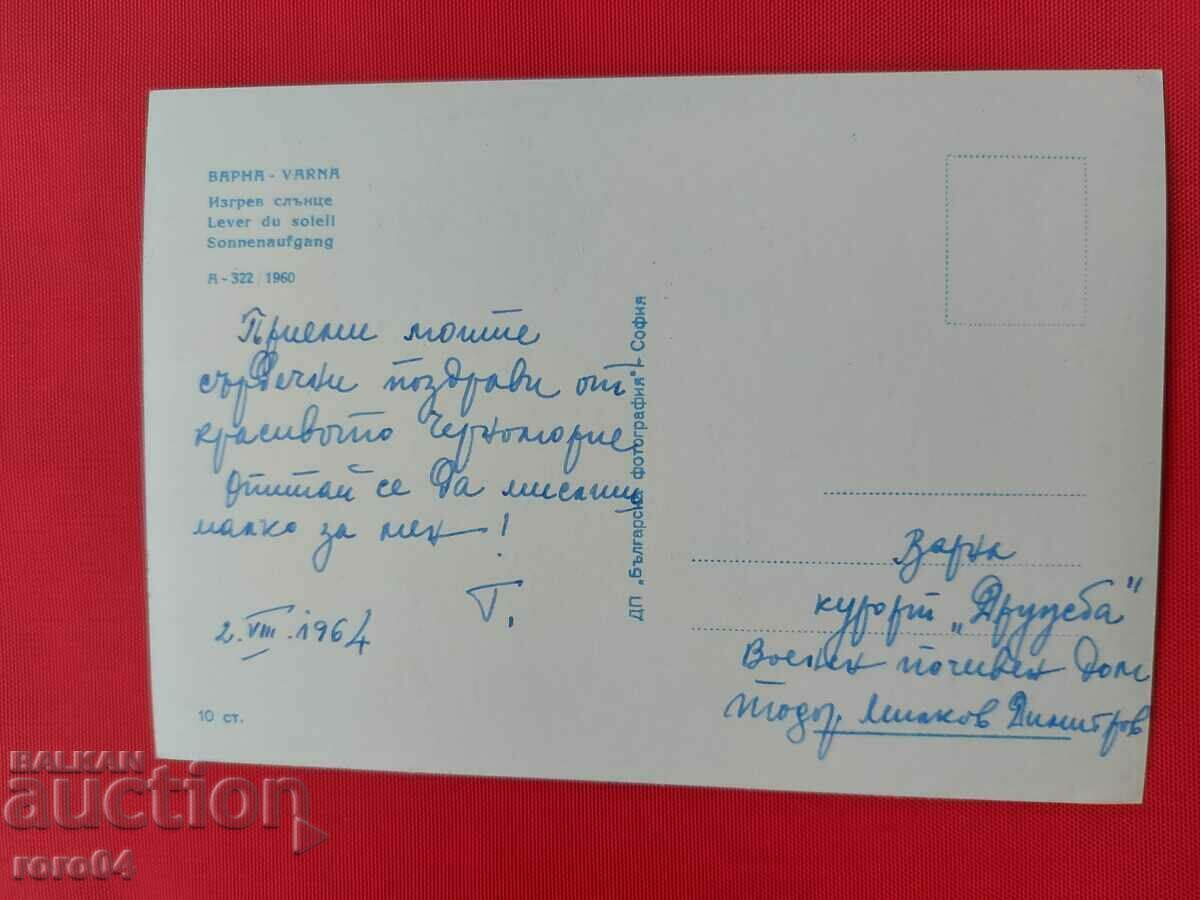 ВАРНА - VARNA
Изгрев слънце
Lever du soleil
Sonnenaufgang
А - 322 / 1960
Приеми моите
сърдечни поздрави от
красивото Черноморие
Опитай се да мислиш
малко за мен!
Т.
2.VIII.1964
10 ст.
ДП „Българска фотография" - София
Варна
курорт „Дружба"
Военен почивен дом
Тодор Милков Димитров
BALKAN
auction
roro04